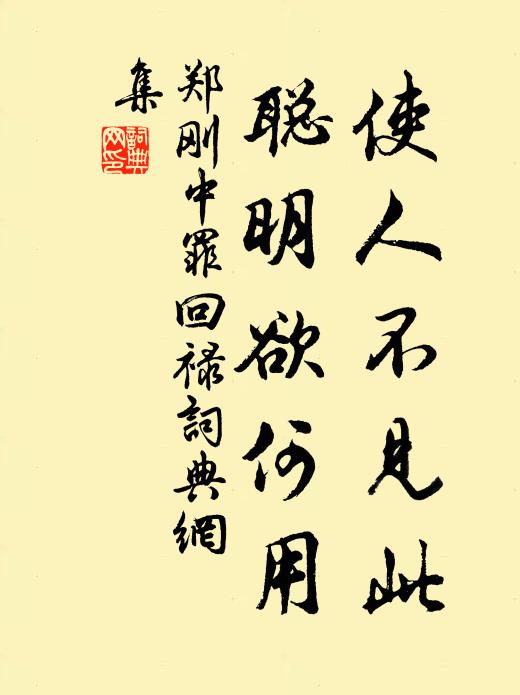 使人不见此
聪明欲何用
郑刚中罪回禄詞典網
集
詞典
网印